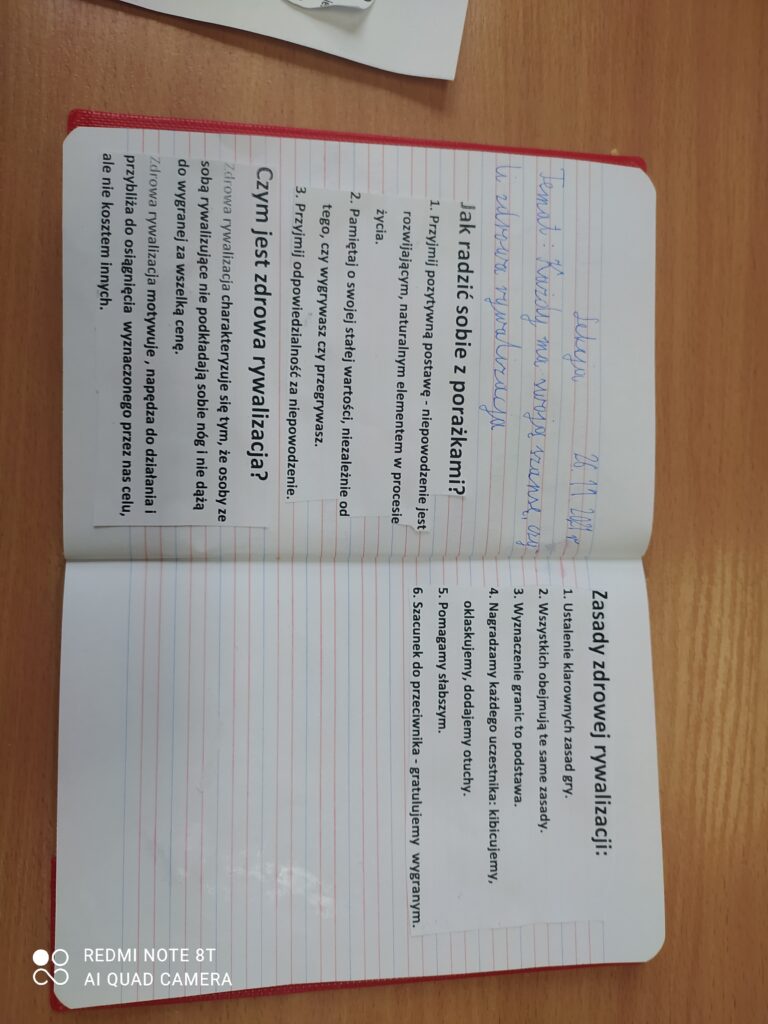 Lekcja 26 11 2021 r
Temat: Każdy ma swoją szansę, czy
li zdrowa rywalizacja
Jak radzić sobie z porażkami?
1. Przyjmij pozytywną postawę - niepowodzenie jest
rozwijającym, naturalnym elementem w procesie
życia.
2. Pamiętaj o swojej stałej wartości, niezależnie od
tego, czy wygrywasz czy przegrywasz.
3. Przyjmij odpowiedzialność za niepowodzenie.
Czym jest zdrowa rywalizacja?
Zdrowa rywalizacja charakteryzuje się tym, że osoby ze
sobą rywalizujące nie podkładają sobie nóg i nie dążą
do wygranej za wszelką cenę.
Zdrowa rywalizacja motywuje , napędza do działania i
przybliża do osiągnięcia wyznaczonego przez nas celu,
ale nie kosztem innych.
Zasady zdrowej rywalizacji:
1. Ustalenie klarownych zasad gry.
2. Wszystkich obejmują te same zasady.
3. Wyznaczenie granic to podstawa.
4. Nagradzamy każdego uczestnika: kibicujemy,
oklaskujemy, dodajemy otuchy.
5. Pomagamy słabszym.
6. Szacunek do przeciwnika - gratulujemy wygranym.
REDMI NOTE 8T
AI QUAD CAMERA